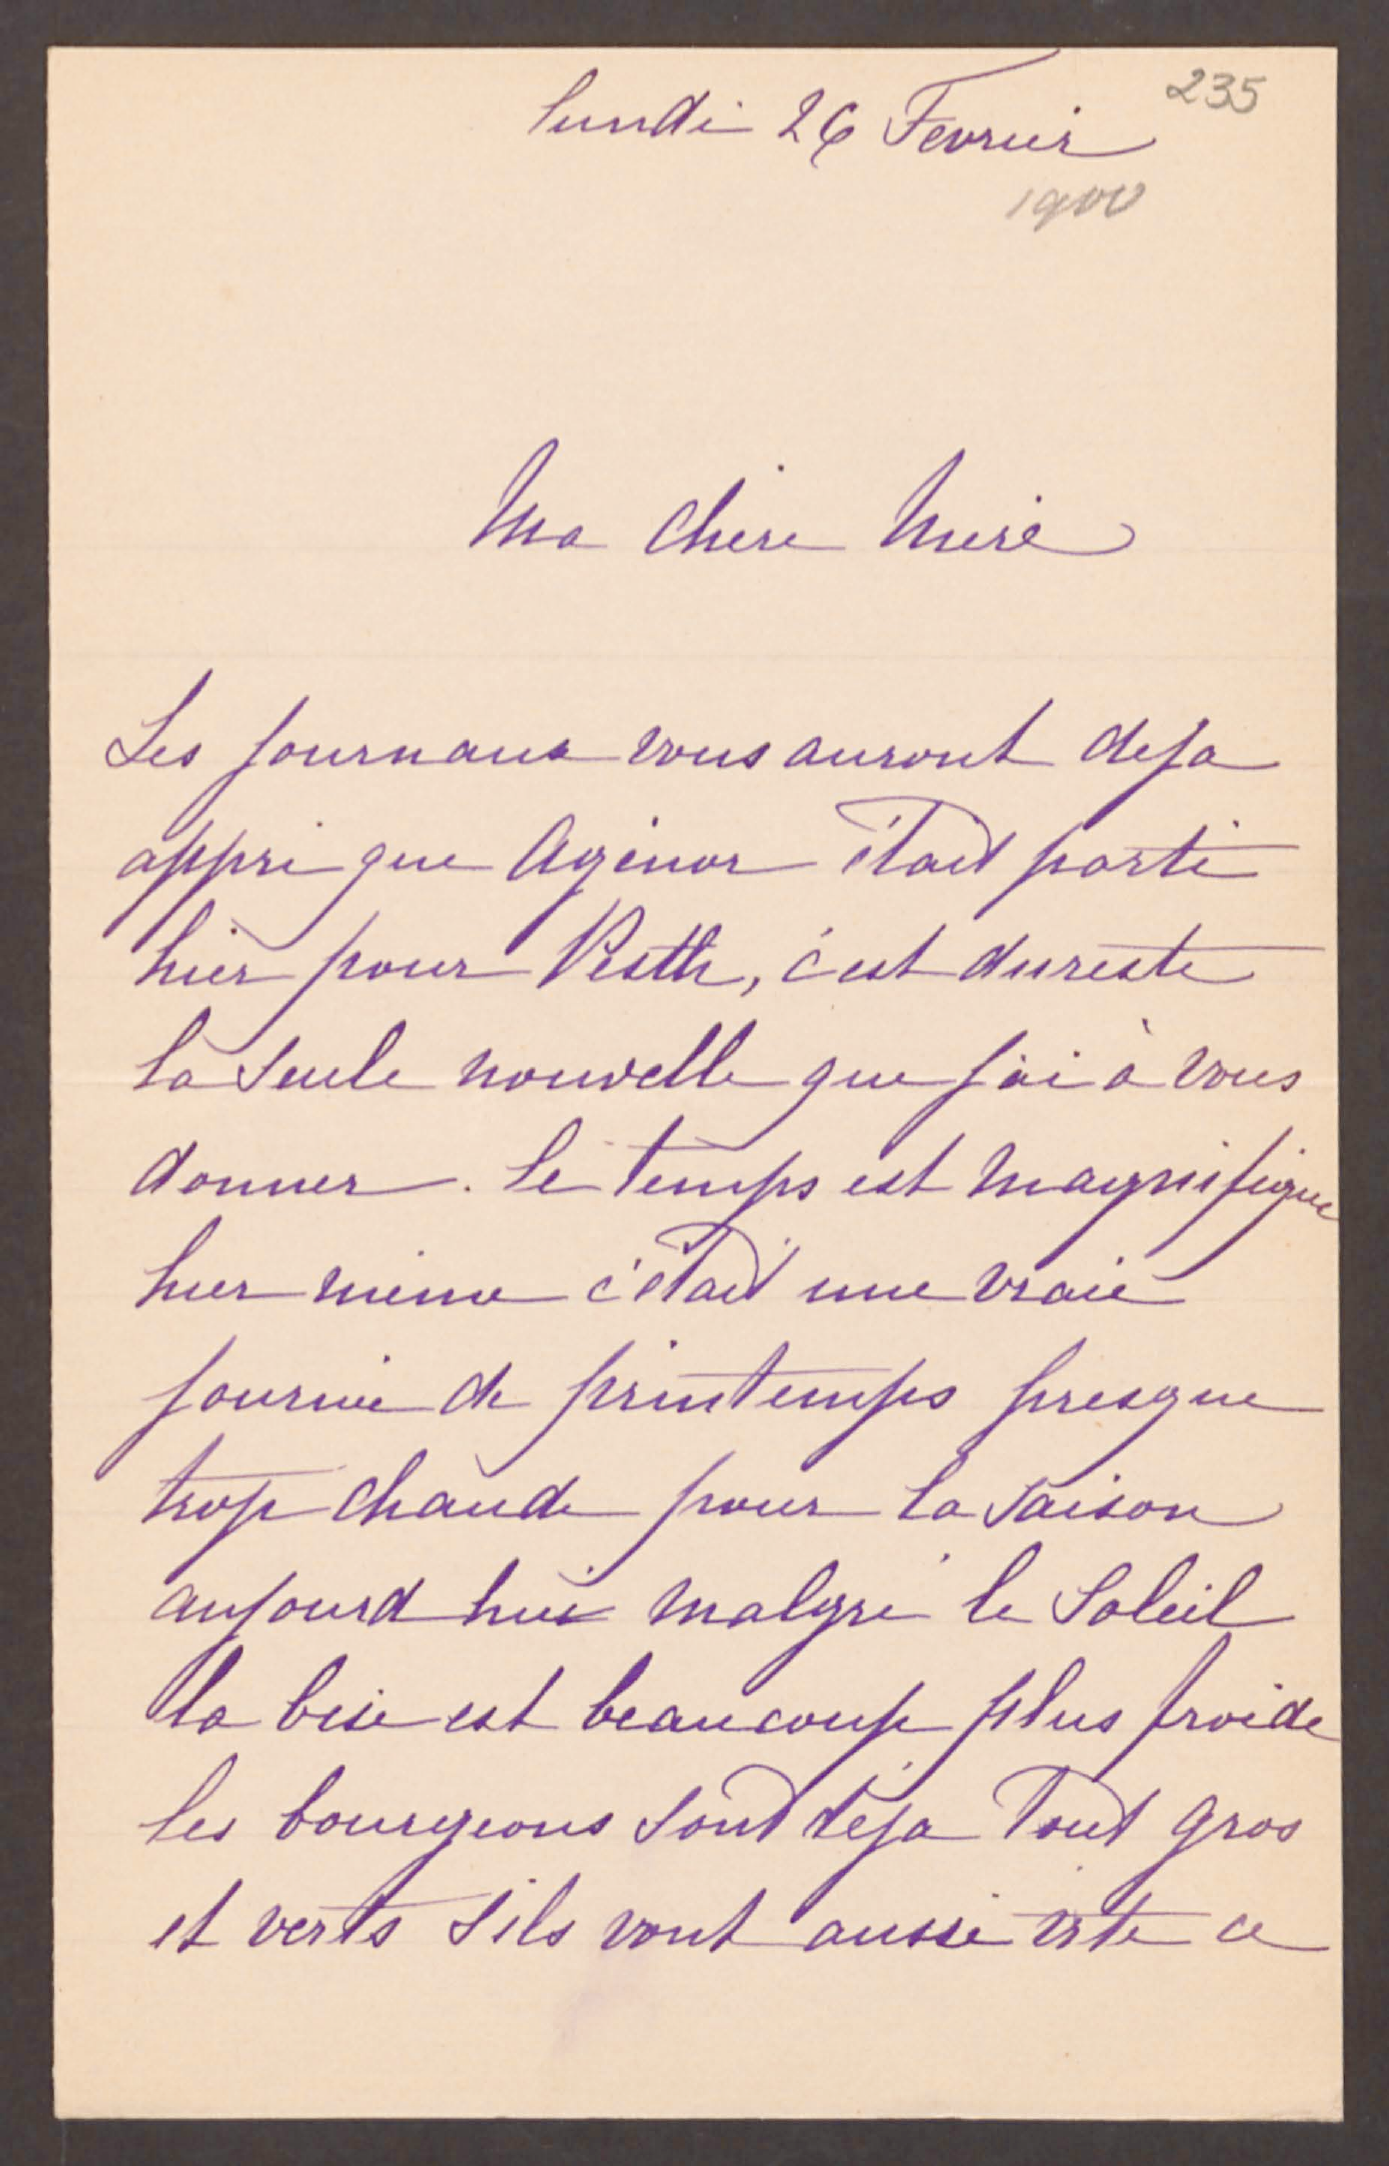 235
lundi 26 Fevrier
1900
Ma chere Mere
Les journaux vous auront deja
appri que Agénor était parti
hier pour Pesth, c'est dureste
la seule nouvelle que j'ai à vous
donner. le temps est magnifique
hier même c'était une vraie
journée de printemps presque
trop chaude pour la saison
aujourd hui malgré le soleil
la bise est beaucoup plus froide
les bourgeons sont déja tout gros
et verts s'ils vont aussi vite ce